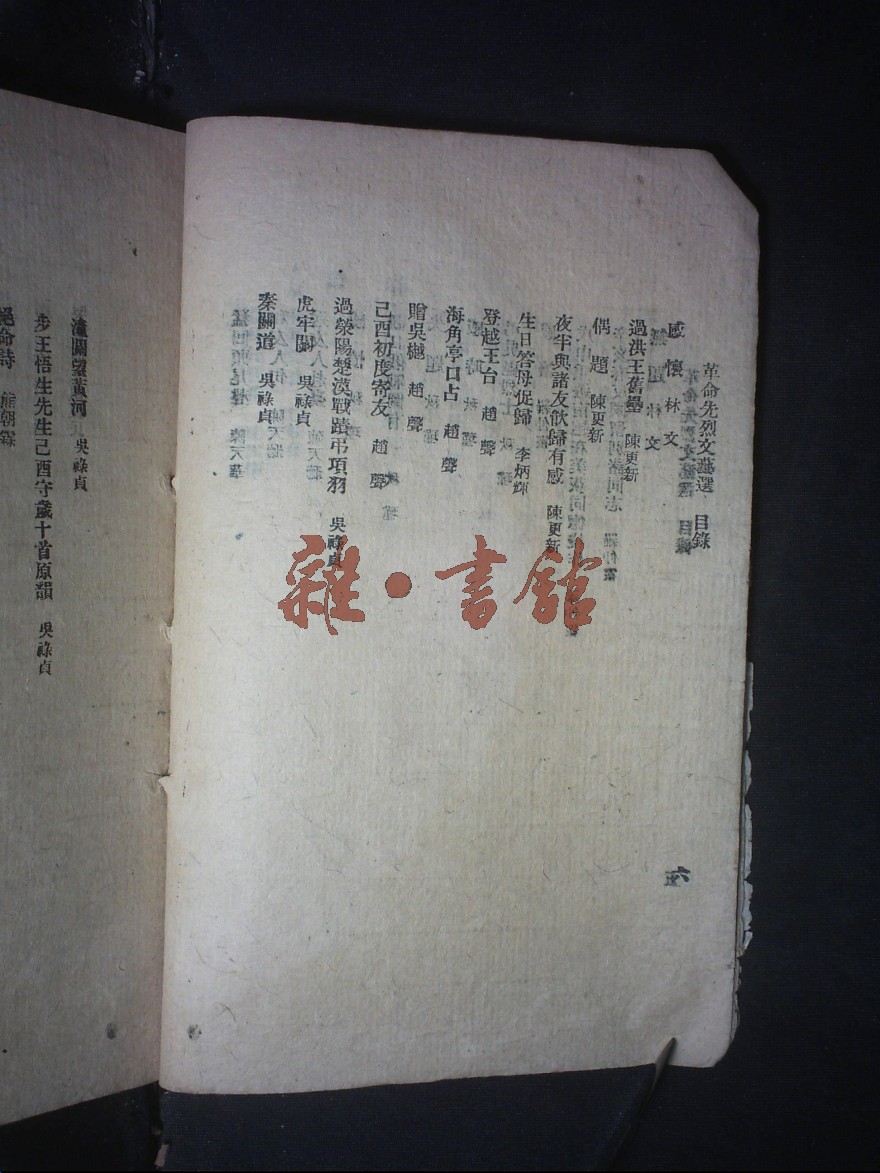 革命先烈文藝選 目錄
感懷 林文
過洪王舊壘 陳更新
偶題 陳更新
夜半與諸友飲歸有感 陳更新
生日答母促歸 李炳輝
登越王台 趙聲
海角亭口占 趙聲
贈吳樾 趙聲
己酉初度寄友 趙聲
過滎陽楚漢戰蹟弔項羽 吳祿貞
虎牢關 吳祿貞
秦關道 吳祿貞
六
潼關望黃河 吳祿貞
步王悟生先生己酉守歲十首原韻 吳祿貞
絕命詩 熊朝霖
雜·書館